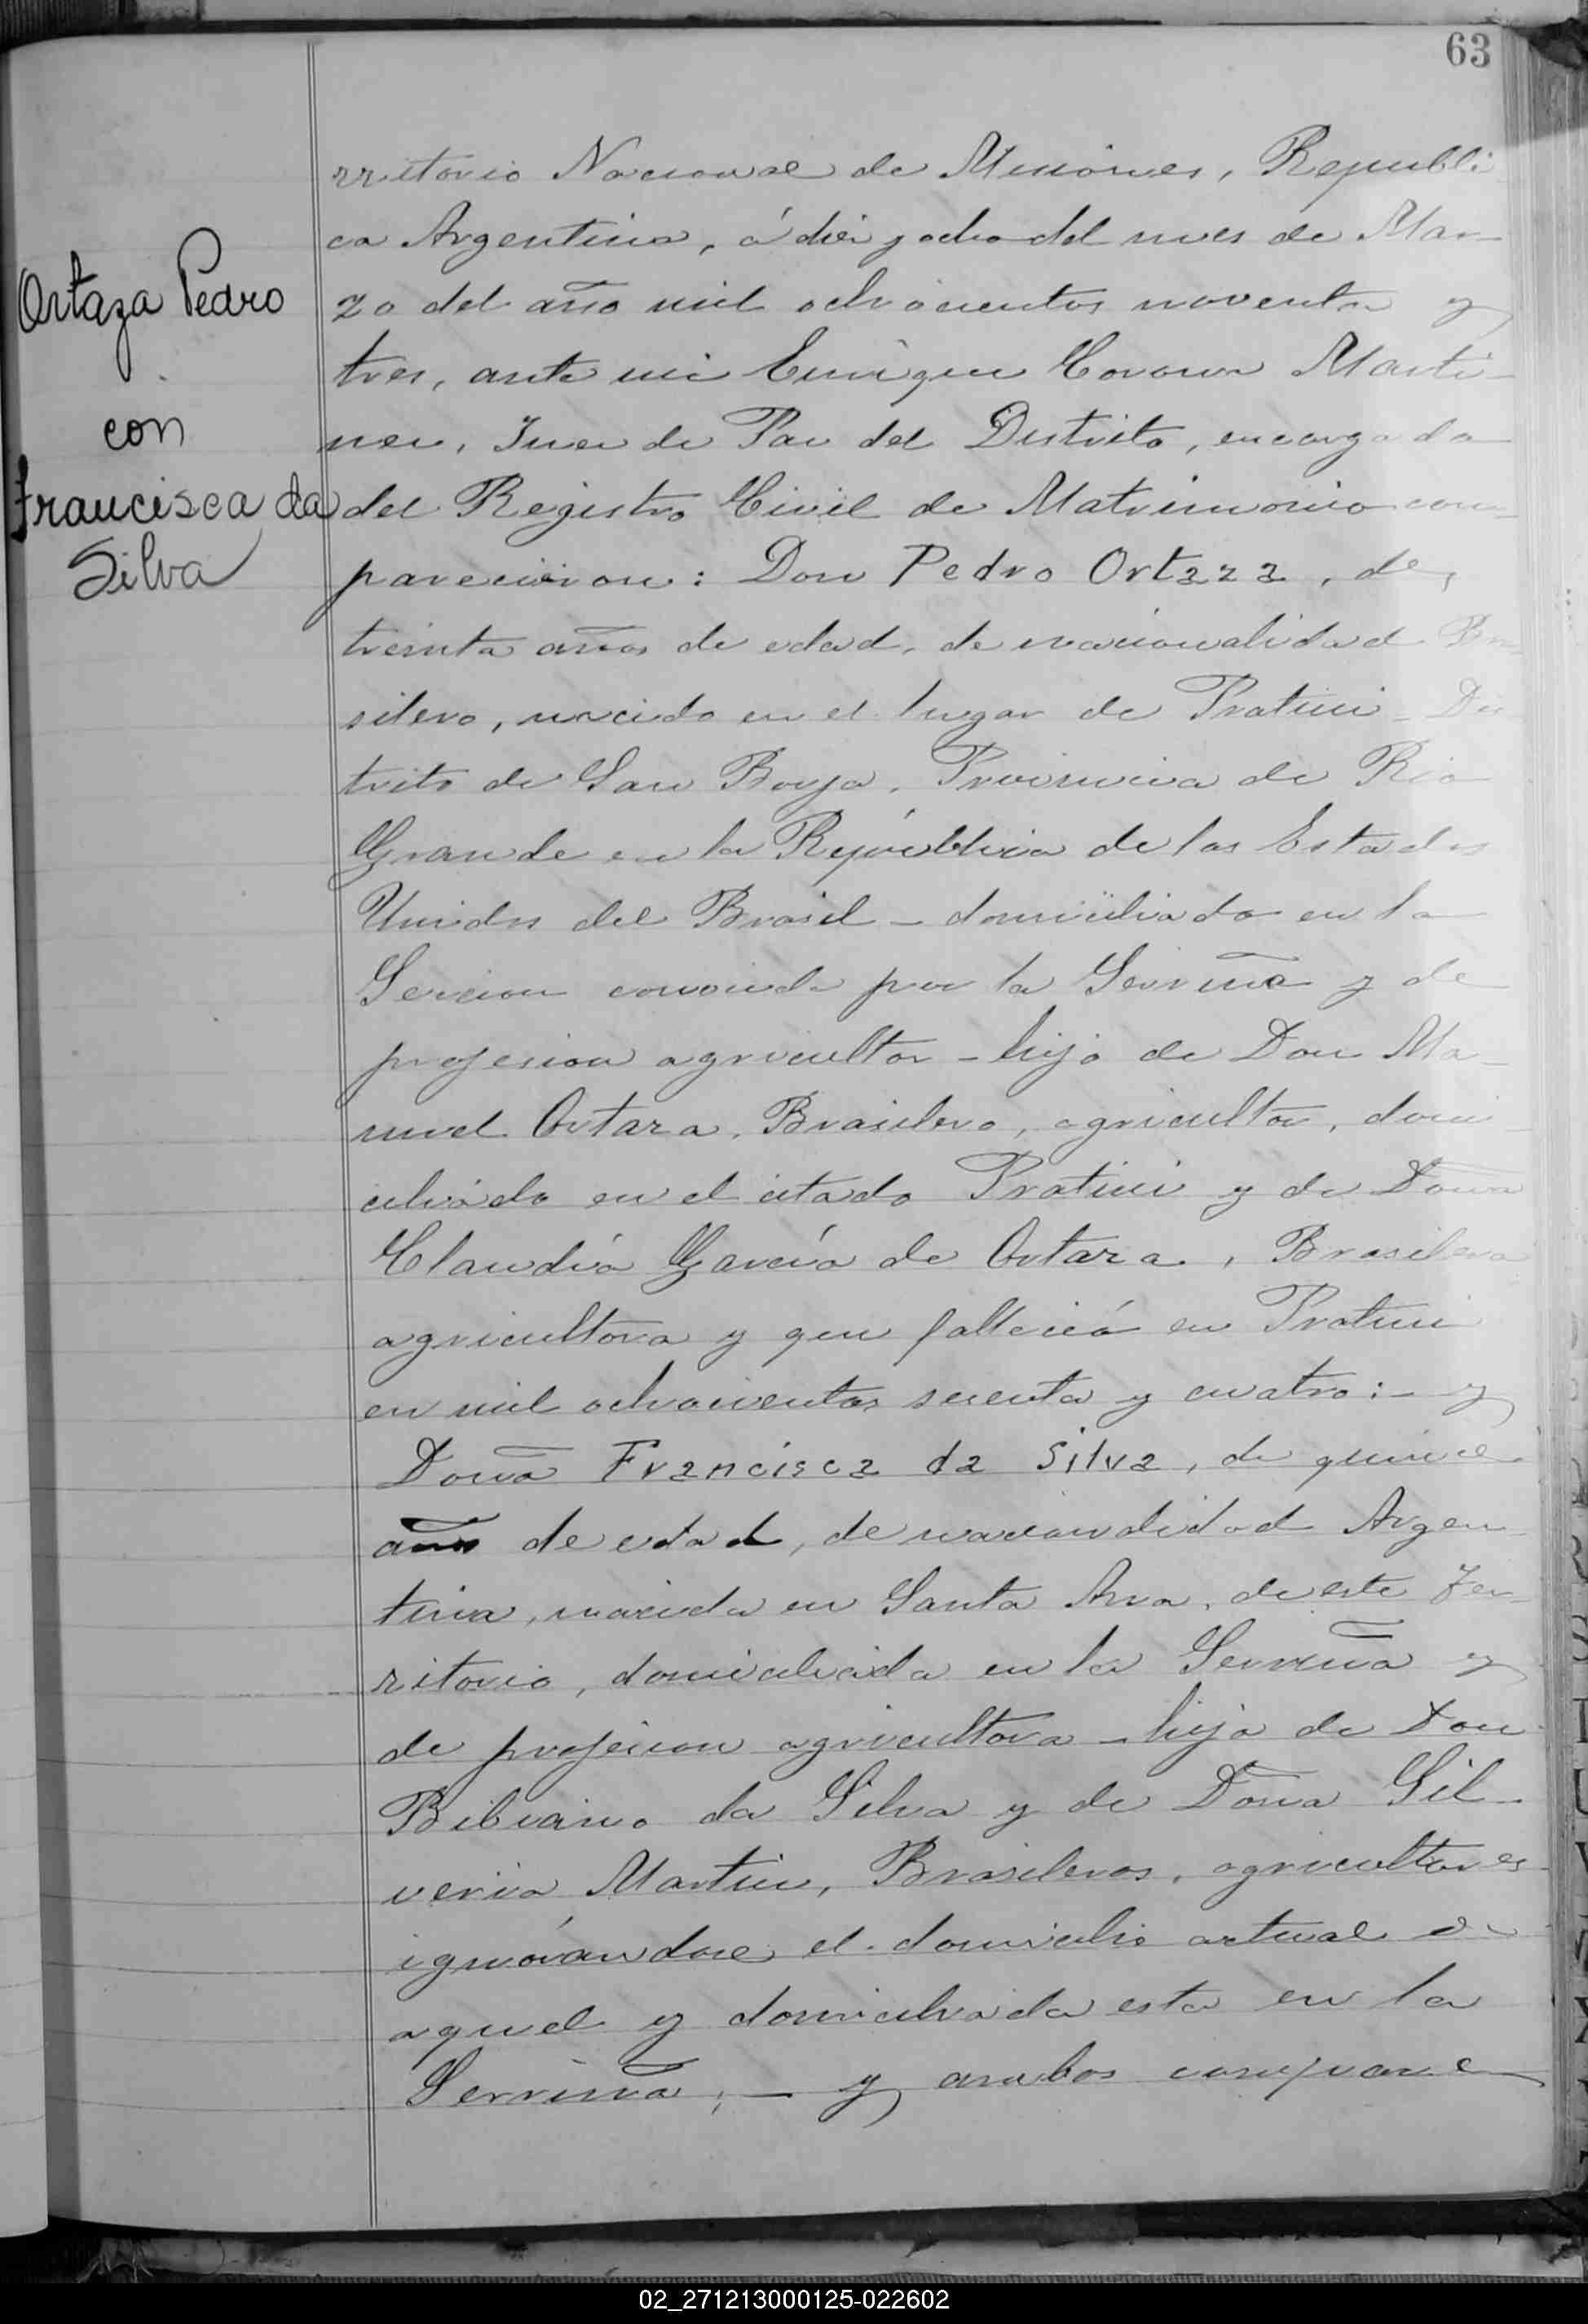 63
rritorio Nacional de Misiones, Republi
ca Argentina, á diez y ocho del mes de Mar-
zo del año mil ochocientos noventa y
tres, ante mi Enrique Corona Marti-
nez, Juez de Paz del Distrito, encargado
del Registro Civil de Matrimonio com-
parecieron: Don Pedro Ortaza, de
treinta años de edad, de nacionalidad Bra
silero, nacido en el lugar de Pratini - Dis
trito de San Borja, Provincia de Rio
Grande en la República de los Estados
Unidos del Brasil - domiciliado en la
Seccion conocida por la Serriña y de
profesion agricultor - hijo de Don Ma-
nuel Ortaza, Brasilero, agricultor, domi
ciliado en el citado Pratini y de Doña
Claudia García de Ortaza, Brasilera
agricultora y que falleció en Pratini
en mil ochocientos sesenta y cuatro: - y
Doña Francisca da Silva, de quince
años de edad, de nacionalidad Argen-
tina, nacida en Santa Ana, de este Ter-
ritorio, domiciliada en la Serriña y
de profesion agricultora - hija de Don
Bibiano da Silva y de Doña Sil-
veria Martin, Brasileros, agricultores
ignorándose el domicilio actual de
aquel y domiciliada esta en la
Serriña; - y ambos compare
Ortaza Pedro
con
Francisca da
Silva
02_271213000125-022602